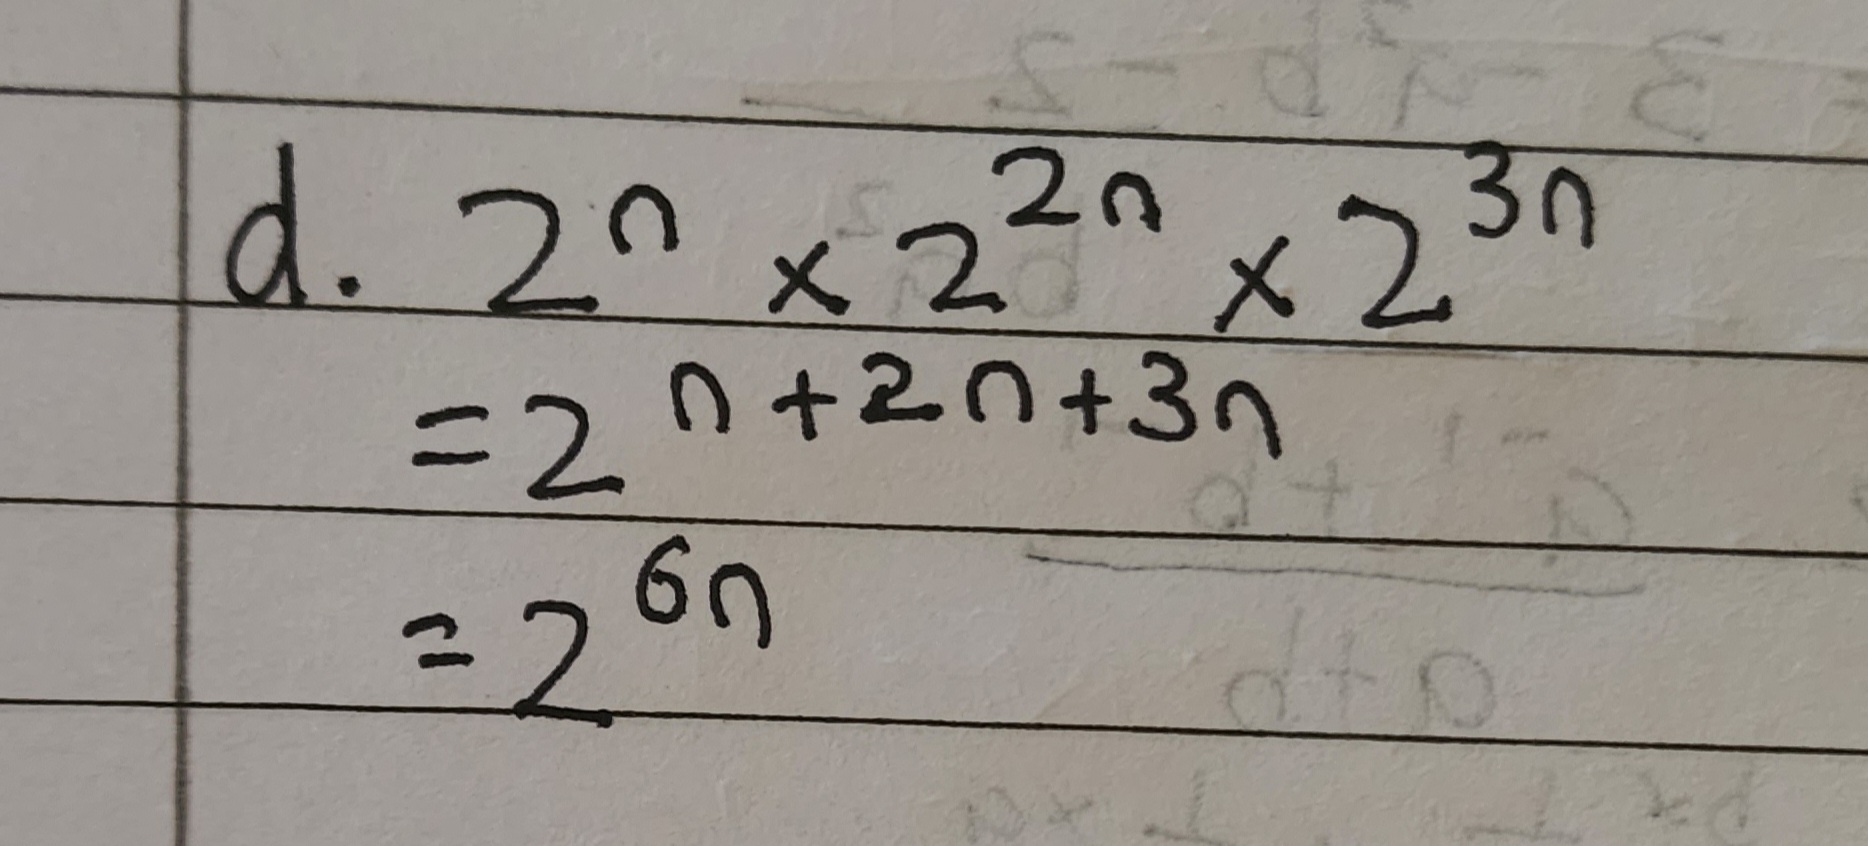 d. 2ⁿ × 2²ⁿ × 2³ⁿ
= 2ⁿ⁺²ⁿ⁺³ⁿ
= 2⁶ⁿ